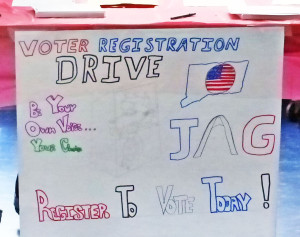 VOTER REGISTRATION
DRIVE
Be Your
Own Voice...
Your
JAG
REGISTER TO VOTE TODAY!